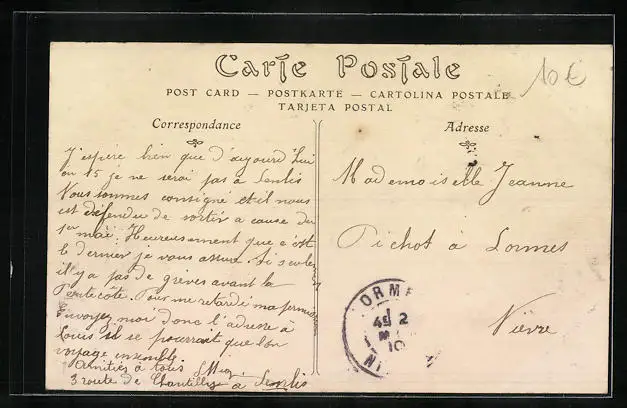 10 €
Carte Postale
POST CARD — POSTKARTE — CARTOLINA POSTALE
TARJETA POSTAL
Correspondance
J'espère bien que d'aujourd'hui
en 15 je ne serai pas à Senlis
Nous sommes consigné et il nous
est défendu de sortir a cause du
1er mai. Heureusement que c'est
le dernier je vous assure. Si seulement
il y a pas de grèves avant la
Pentecôte. Pour me retardé ma permission
Envoyez moi donc l'adresse à
Louis il se pourrait que l'on
voyage ensemble
Amitiés à tous
3 route de Chantilly à Senlis
Adresse
Mademoiselle Jeanne
Pichot à Lormes
Nièvre
ORM
2
10